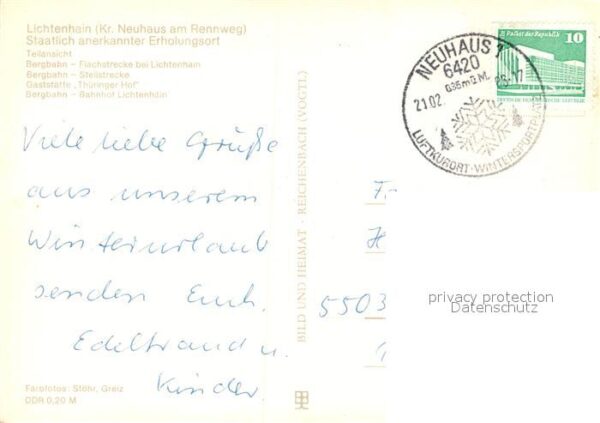 Lichtenhain (Kr. Neuhaus am Rennweg)
Staatlich anerkannter Erholungsort
Teilansicht
Bergbahn – Flachstrecke bei Lichtenhain
Bergbahn – Steilstrecke
Gaststätte „Thüringer Hof"
Bergbahn – Bahnhof Lichtenhain
Viele liebe Grüße
aus unserem
Winterurlaub
senden Euch
Edeltraud u.
Kinder.
Farbfotos: Stöhr, Greiz
DDR 0,20 M
BILD UND HEIMAT · REICHENBACH (VOGTL)
NEUHAUS 1
6420
835 m ü. M.
21.02. 85-17
LUFTKURORT · WINTERSPORTPLATZ
Palast der Republik
10
DEUTSCHE DEMOKRATISCHE REPUBLIK
5503
privacy protection
Datenschutz